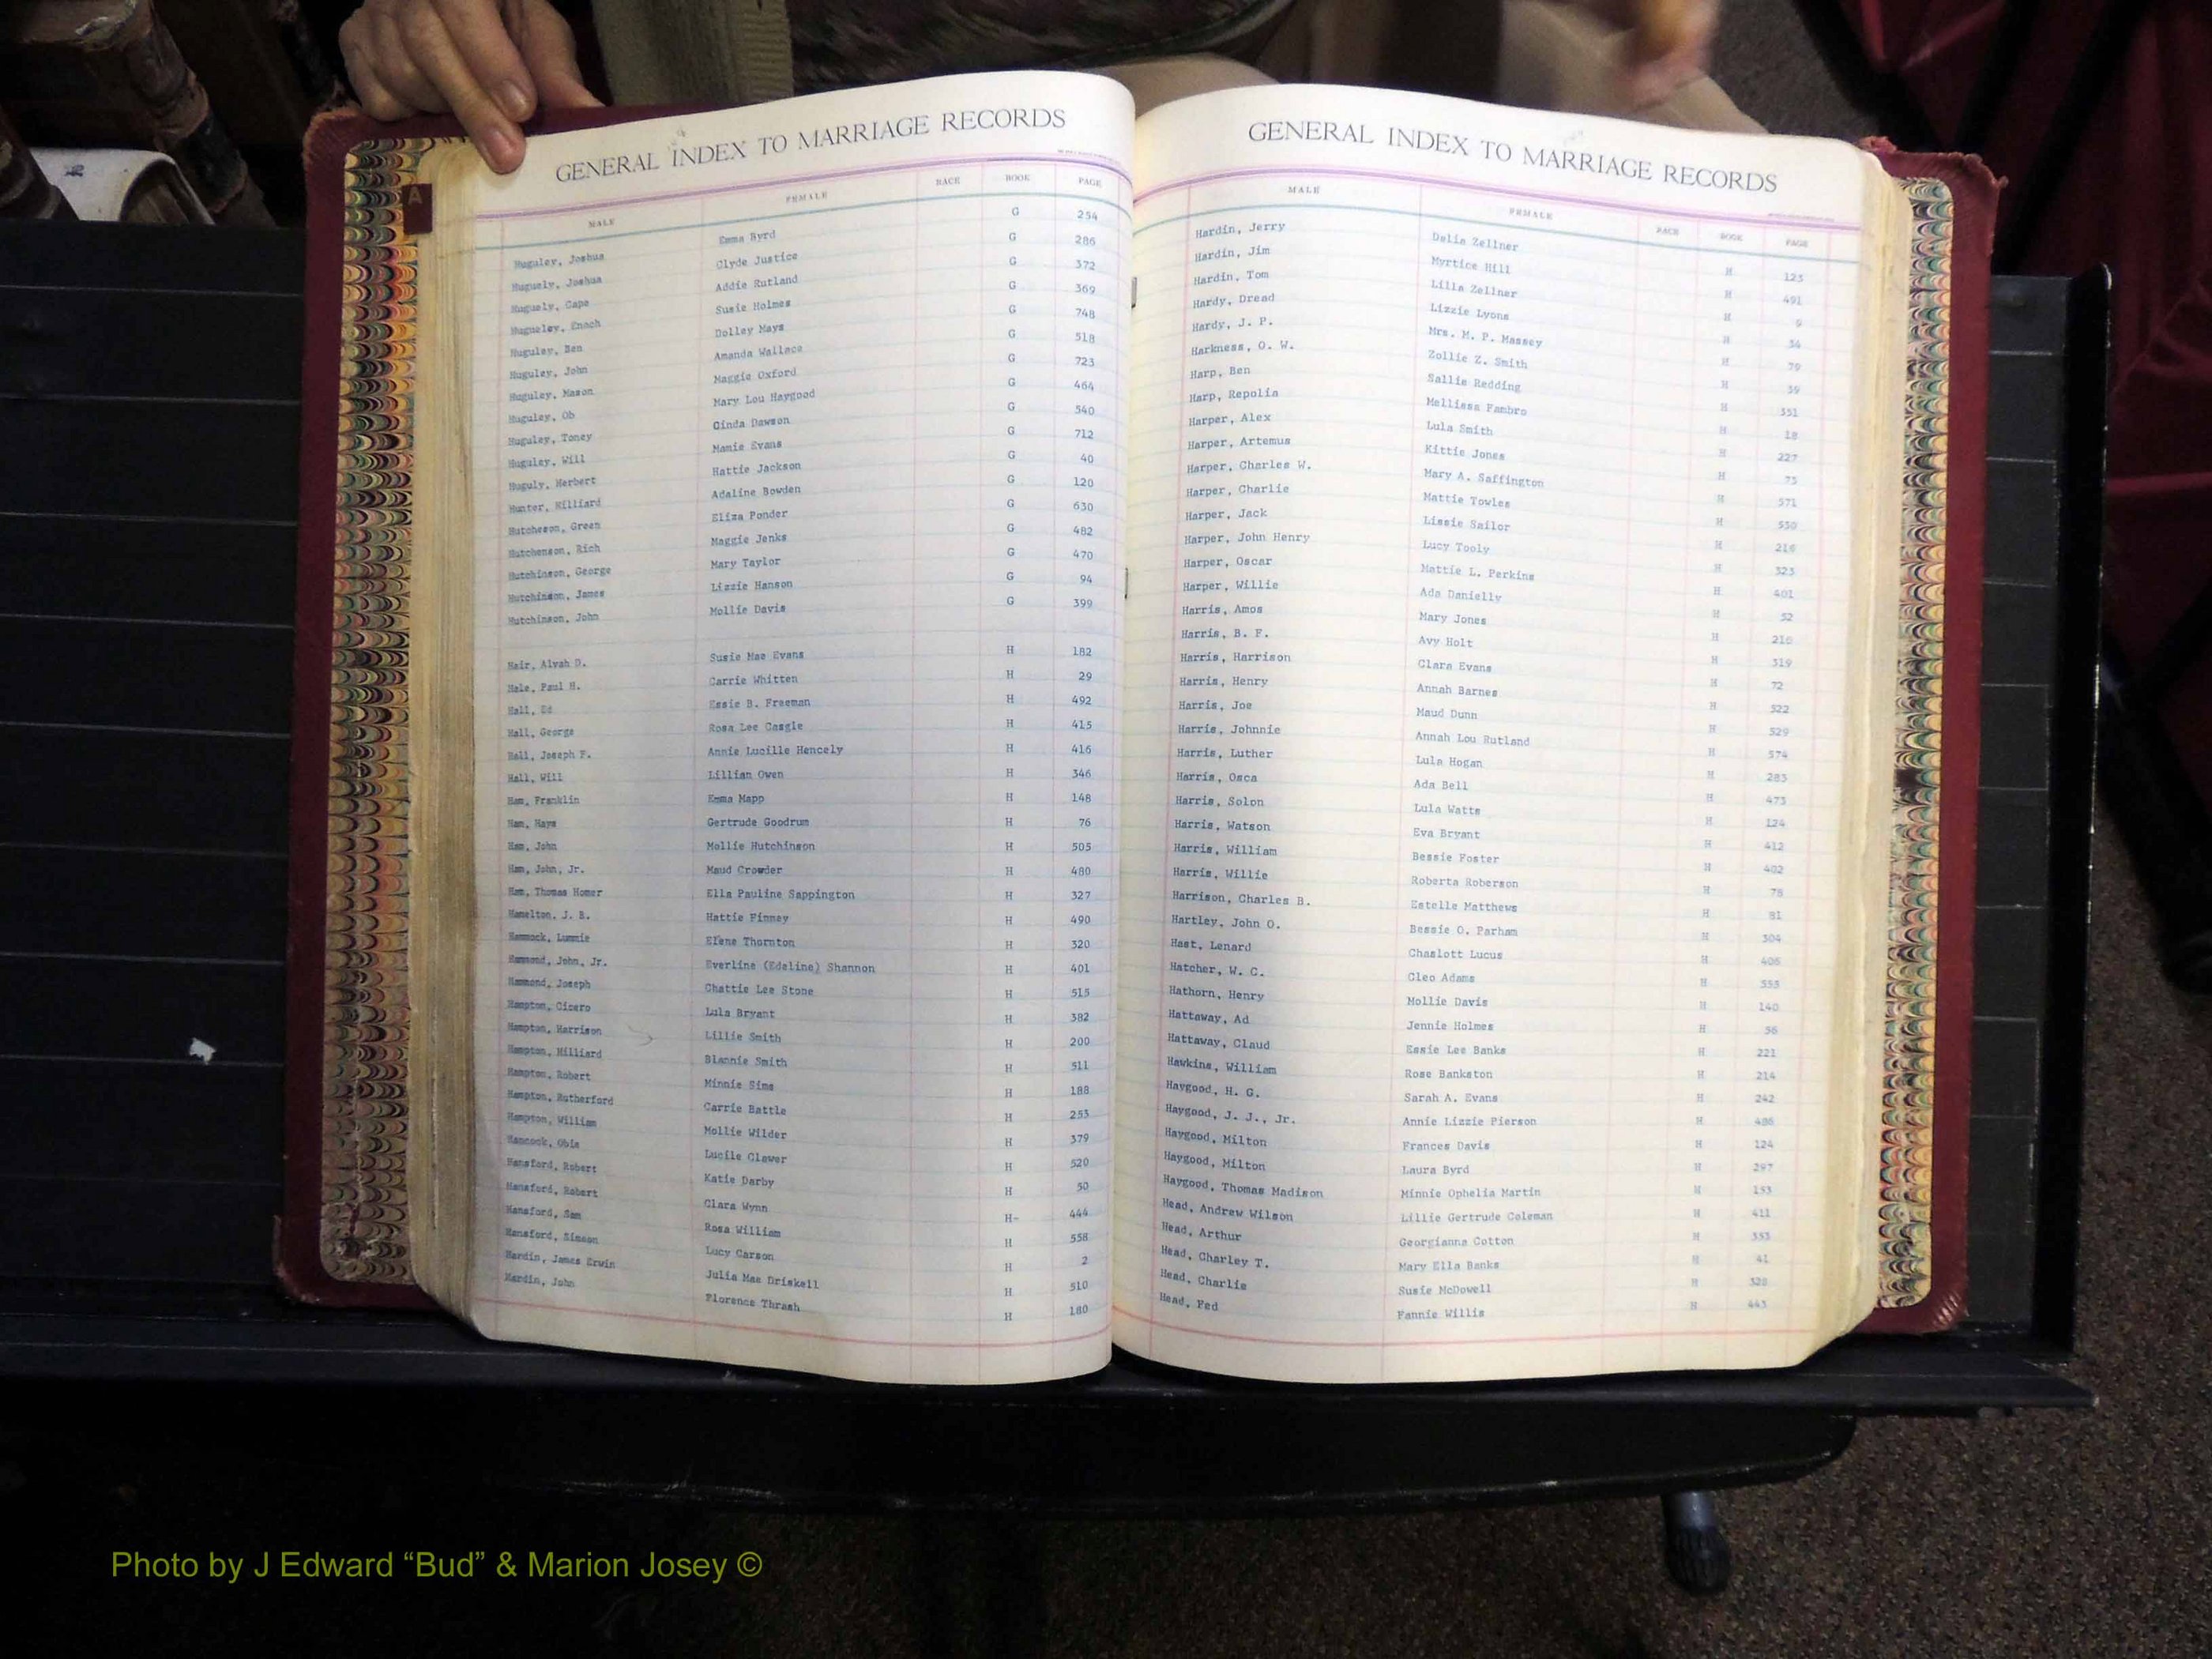 GENERAL INDEX TO MARRIAGE RECORDS
MALE FEMALE RACE BOOK PAGE
Huguley, Joshua Emma Byrd G 254
Huguely, Joshua Clyde Justice G 286
Huguely, Cape Addie Rutland G 372
Hugueley, Enoch Susie Holmes G 369
Huguley, Ben Dolley Mays G 748
Huguley, John Amanda Wallace G 518
Huguley, Mason Maggie Oxford G 723
Huguley, Ob Mary Lou Haygood G 464
Huguley, Toney Cinda Dawson G 540
Huguley, Will Mamie Evans G 712
Huguly, Herbert Hattie Jackson G 40
Hunter, Hilliard Adaline Bowden G 120
Hutcheson, Green Eliza Ponder G 630
Hutchenson, Rich Maggie Jenks G 482
Hutchinson, George Mary Taylor G 470
Hutchinson, James Lizzie Hanson G 94
Hutchinson, John Mollie Davis G 399
Hair, Alvah D. Susie Mae Evans H 182
Hale, Paul H. Carrie Whitten H 29
Hall, Ed Essie B. Freeman H 492
Hall, George Rosa Lee Casgle H 415
Hall, Joseph F. Annie Lucille Hencely H 416
Hall, Will Lillian Owen H 346
Ham, Franklin Emma Mapp H 148
Ham, Hays Gertrude Goodrum H 76
Ham, John Mollie Hutchinson H 505
Ham, John, Jr. Maud Crowder H 480
Ham, Thomas Homer Ella Pauline Sappington H 327
Hamelton, J. B. Hattie Finney H 490
Hammock, Lummie Efene Thornton H 320
Hammond, John, Jr. Everline (Edeline) Shannon H 401
Hammond, Joseph Chattie Lee Stone H 515
Hampton, Cicero Lula Bryant H 382
Hampton, Harrison Lillie Smith H 200
Hampton, Hilliard Blannie Smith H 511
Hampton, Robert Minnie Sims H 188
Hampton, Rutherford Carrie Battle H 253
Hampton, William Mollie Wilder H 379
Hancock, Obie Lucile Clawer H 520
Hansford, Robert Katie Darby H 50
Hansford, Robert Clara Wynn H- 444
Hansford, Sam Rosa William H 558
Hansford, Simeon Lucy Carson H 2
Hardin, James Erwin Julia Mae Driskell H 510
Hardin, John Florence Thrash H 180
GENERAL INDEX TO MARRIAGE RECORDS
MALE FEMALE RACE BOOK PAGE
Hardin, Jerry Delia Zellner H 123
Hardin, Jim Myrtice Hill H 491
Hardin, Tom Lilla Zellner H 9
Hardy, Dread Lizzie Lyons H 34
Hardy, J. P. Mrs. M. P. Massey H 79
Harkness, O. W. Zollie Z. Smith H 39
Harp, Ben Sallie Redding H 351
Harp, Repolia Mellissa Fambro H 18
Harper, Alex Lula Smith H 227
Harper, Artemus Kittie Jones H 75
Harper, Charles W. Mary A. Saffington H 571
Harper, Charlie Mattie Towles H 550
Harper, Jack Lissie Sailor H 216
Harper, John Henry Lucy Tooly H 323
Harper, Oscar Mattie L. Perkins H 401
Harper, Willie Ada Danielly H 52
Harris, Amos Mary Jones H 216
Harris, B. F. Avy Holt H 319
Harris, Harrison Clara Evans H 72
Harris, Henry Annah Barnes H 522
Harris, Joe Maud Dunn H 529
Harris, Johnnie Annah Lou Rutland H 574
Harris, Luther Lula Hogan H 283
Harris, Osca Ada Bell H 473
Harris, Solon Lula Watts H 124
Harris, Watson Eva Bryant H 412
Harris, William Bessie Foster H 402
Harris, Willie Roberta Roberson H 78
Harrison, Charles B. Estelle Matthews H 81
Hartley, John O. Bessie O. Parham H 304
Hast, Lenard Chaslott Lucus H 406
Hatcher, W. C. Cleo Adams H 553
Hathorn, Henry Mollie Davis H 140
Hattaway, Ad Jennie Holmes H 56
Hattaway, Claud Essie Lee Banks H 221
Hawkins, William Rose Bankston H 214
Haygood, H. G. Sarah A. Evans H 242
Haygood, J. J., Jr. Annie Lizzie Pierson H 486
Haygood, Milton Frances Davis H 124
Haygood, Milton Laura Byrd H 297
Haygood, Thomas Madison Minnie Ophelia Martin H 153
Head, Andrew Wilson Lillie Gertrude Coleman H 411
Head, Arthur Georgianna Cotton H 353
Head, Charley T. Mary Ella Banks H 41
Head, Charlie Susie McDowell H 328
Head, Fed Fannie Willis H 443
A
Photo by J Edward “Bud” & Marion Josey ©